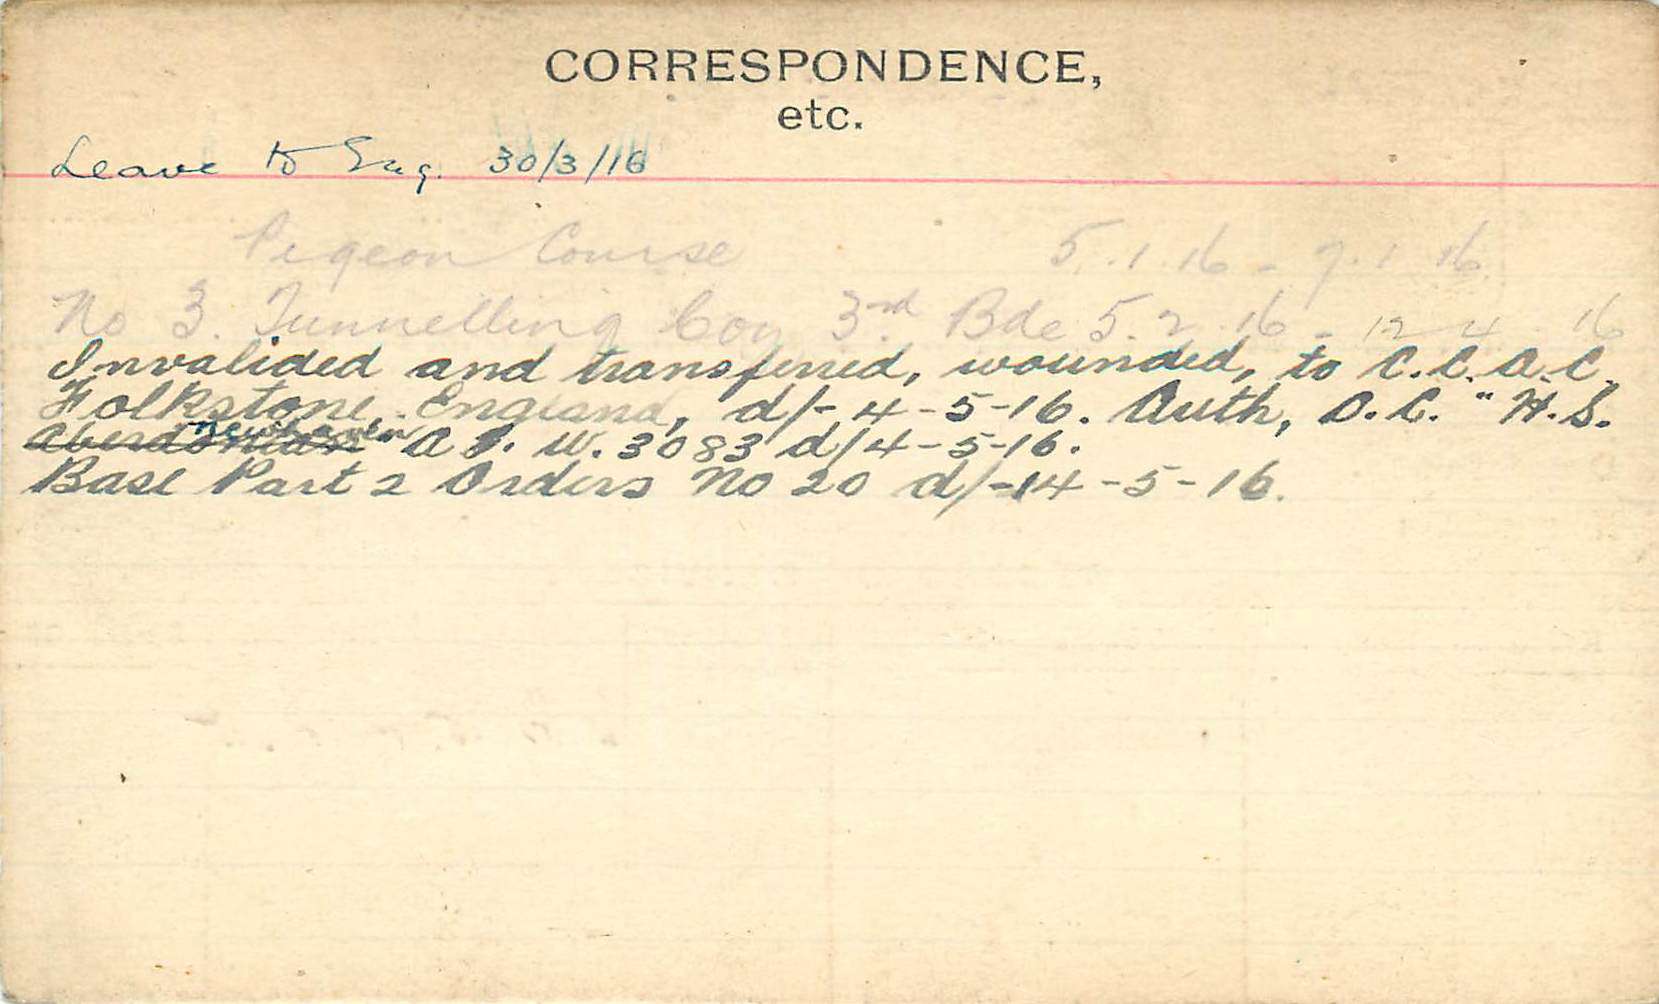 CORRESPONDENCE,
etc.
Leave to Eng. 30/3/16
Pigeon Course 5.1.16 - 7.1.16
No 3. Tunnelling Coy 3rd Bde 5.2.16 - 12-4-16
Invalided and transferred, wounded, to C.C.A.C.
Folkstone, England, d/- 4-5-16. Auth, O.C. "H.S.
Newhaven
Aberdonian" A.F. W. 3083 d/4-5-16.
Base Part 2 Orders No 20 d/-14-5-16.